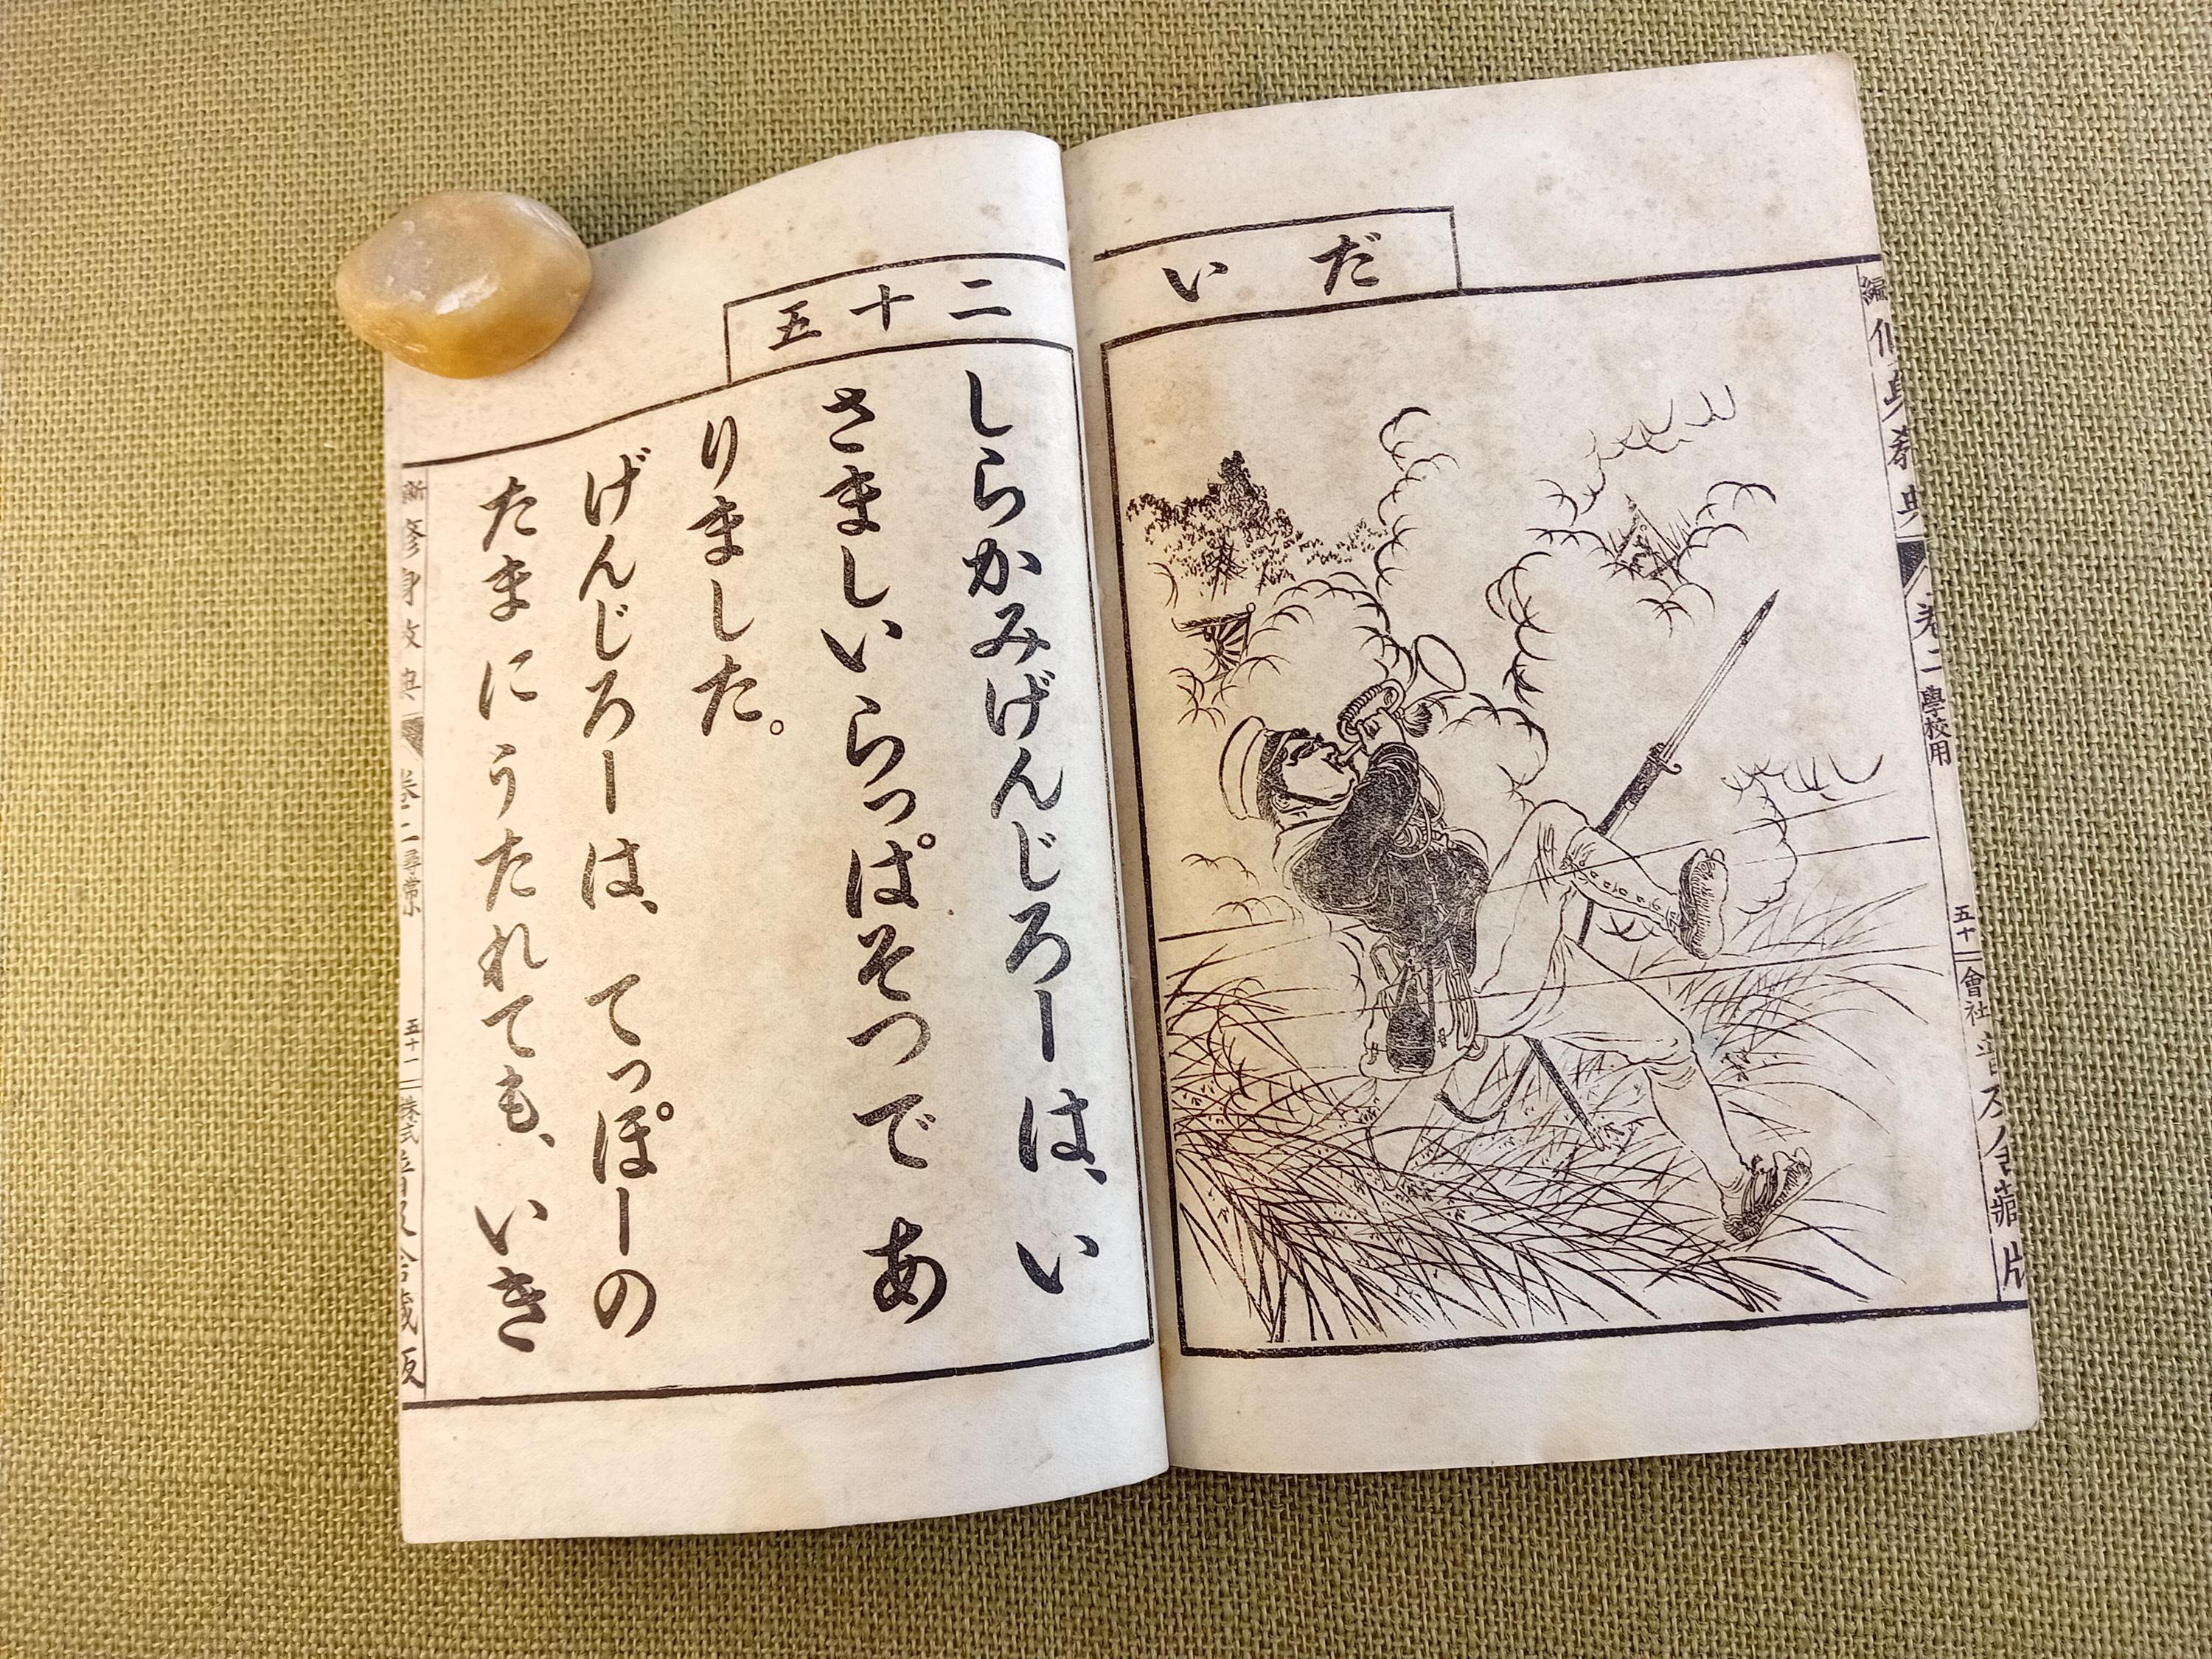 だい
編修身教典 卷二 學校用 五十 會社普及舍藏版
二十五
しらかみげんじろーは、い
さましいらっぱそつであ
りました。
げんじろーは、てっぽーの
たまにうたれても、いき
新修身教典 卷二 尋常 五十一 株式普及舍藏版